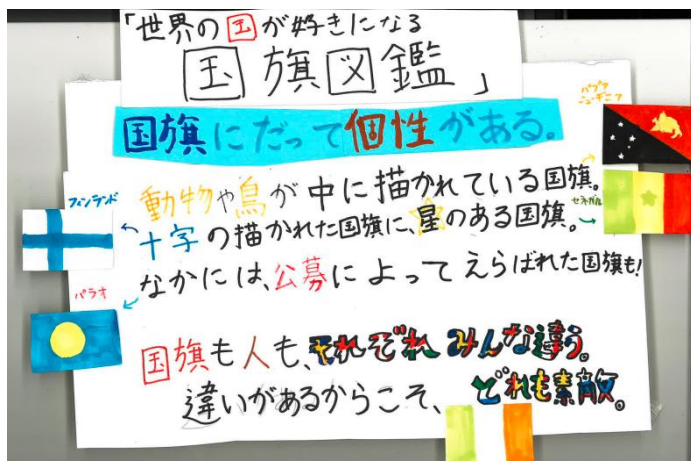 「世界の国が好きになる
国旗図鑑」
国旗にだって個性がある。
パプア
ニューギニア
動物や鳥が中に描かれている国旗。
フィンランド
十字の描かれた国旗に、星のある国旗。
セネガル
なかには、公募によってえらばれた国旗も!
パラオ
国旗も人も、それぞれみんな違う。
違いがあるからこそ、どれも素敵。